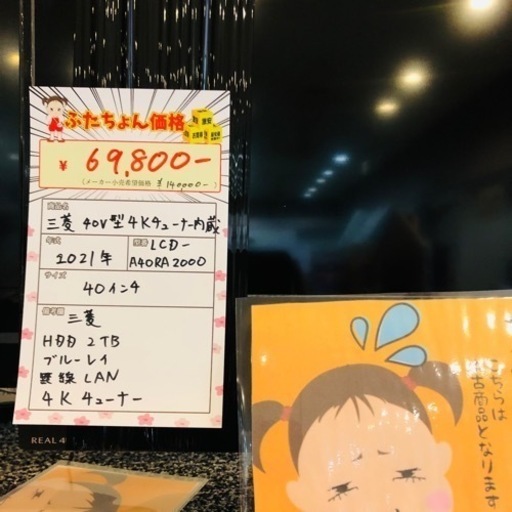 ふたちょん価格
¥ 69,800-
(メーカー小売希望価格 ¥140000-)
商品名
三菱 40V型4Kチューナー内蔵
年式
2021年
型番
LCD-
A40RA2000
サイズ
40インチ
備考欄
三菱
HDD 2TB
ブルーレイ
無線LAN
4Kチューナー
REAL4
こちらは
古商品となります